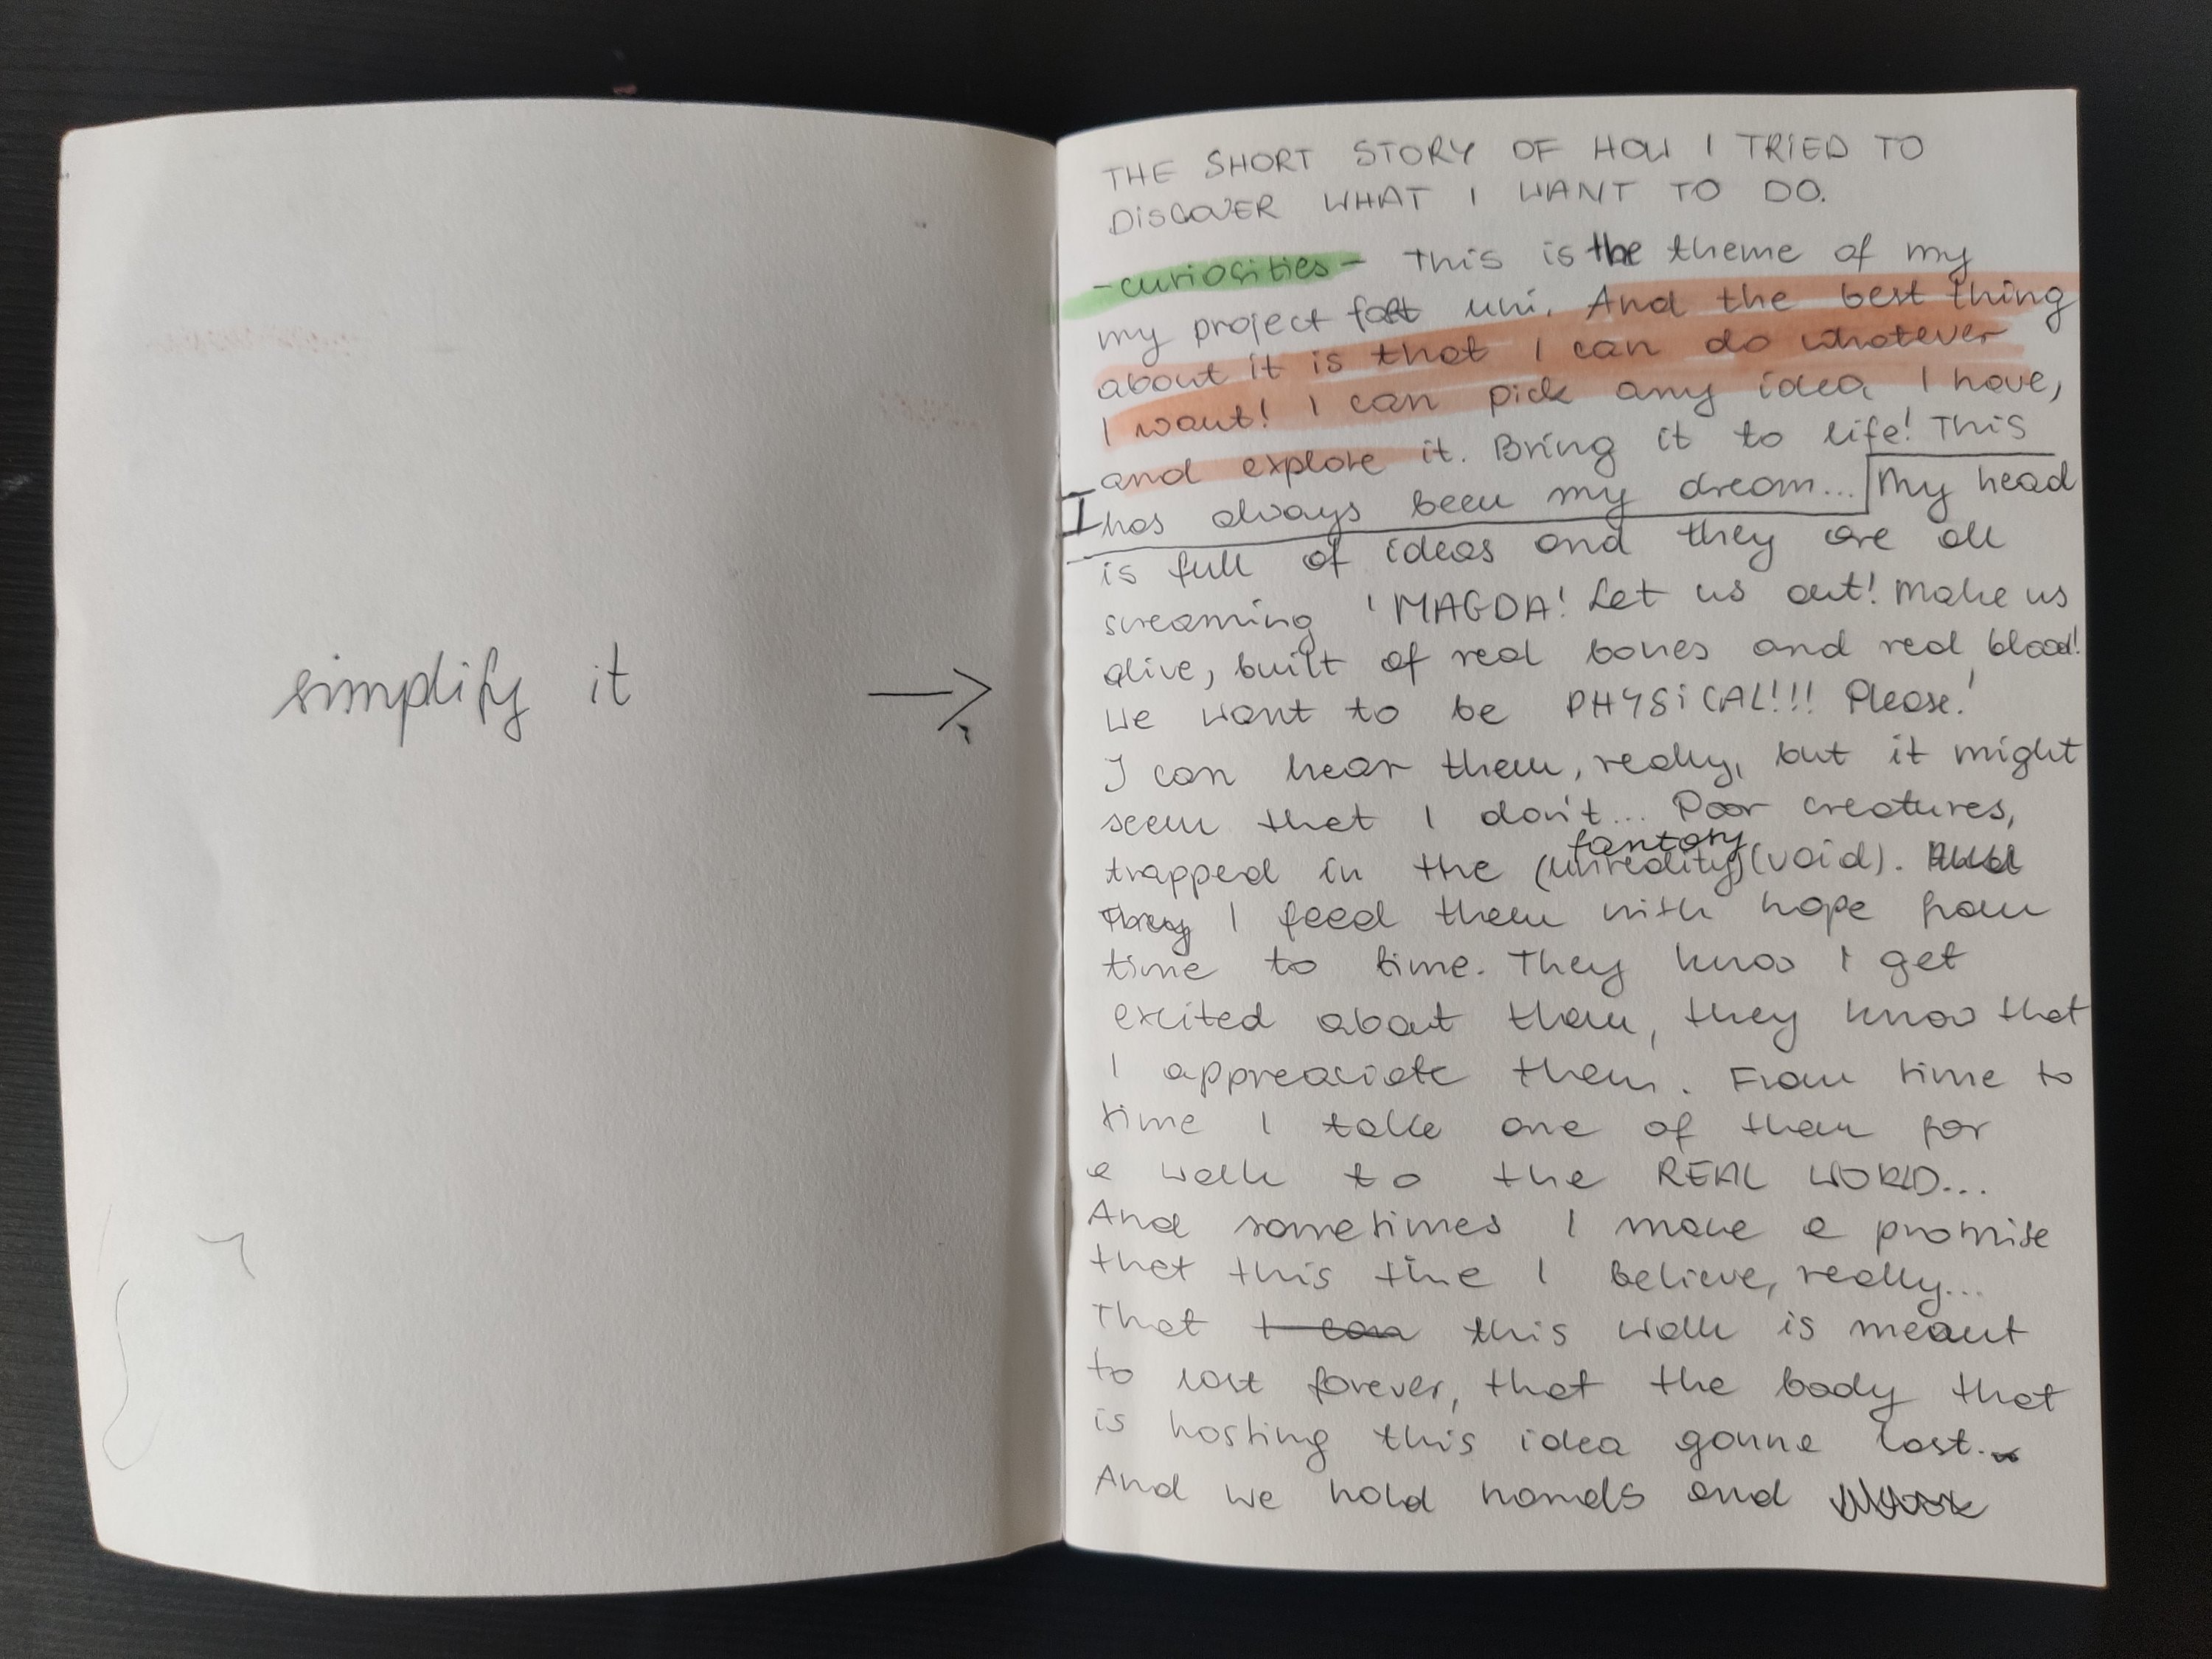 simplify it →
THE SHORT STORY OF HOW I TRIED TO
DISCOVER WHAT I WANT TO DO.
-curiosities- This is the theme of my
my project for uni. And the best thing
about it is that I can do whatever
I want! I can pick any idea I have,
and explore it. Bring it to life! This
has always been my dream... My head
is full of ideas and they are all
screaming 'MAGDA! Let us out! Make us
alive, built of real bones and real blood!
We want to be PHYSiCAL!!! Please!'
I can hear them, really, but it might
seem that I don't... Poor creatures,
fantasy
trapped in the (unreality)(void).
They I feed them with hope from
time to time. They know I get
excited about them, they know that
I appreaciate them. From time to
time I take one of them for
a walk to the REAL WORLD...
And sometimes I make a promise
that this time I believe, really...
That I can this walk is meant
to last forever, that the body that
is hosting this idea gonna last...
And we hold hands and